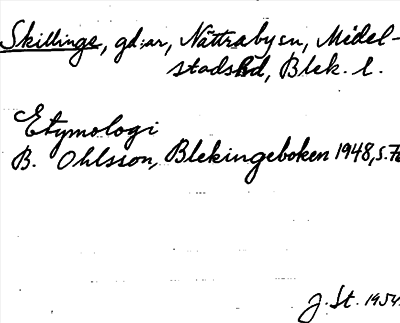 Skillinge, gd:ar, Nättraby sn, Medel-
stads hd, Blek. l.
Etymologi
B. Ohlsson, Blekingeboken 1948, s.
J. St. 1954.